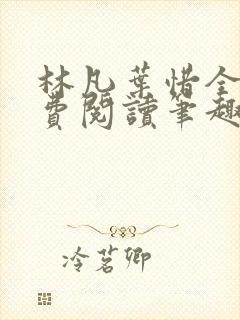 林凡葉惜全
費閱讀筆趣
冷茗卿